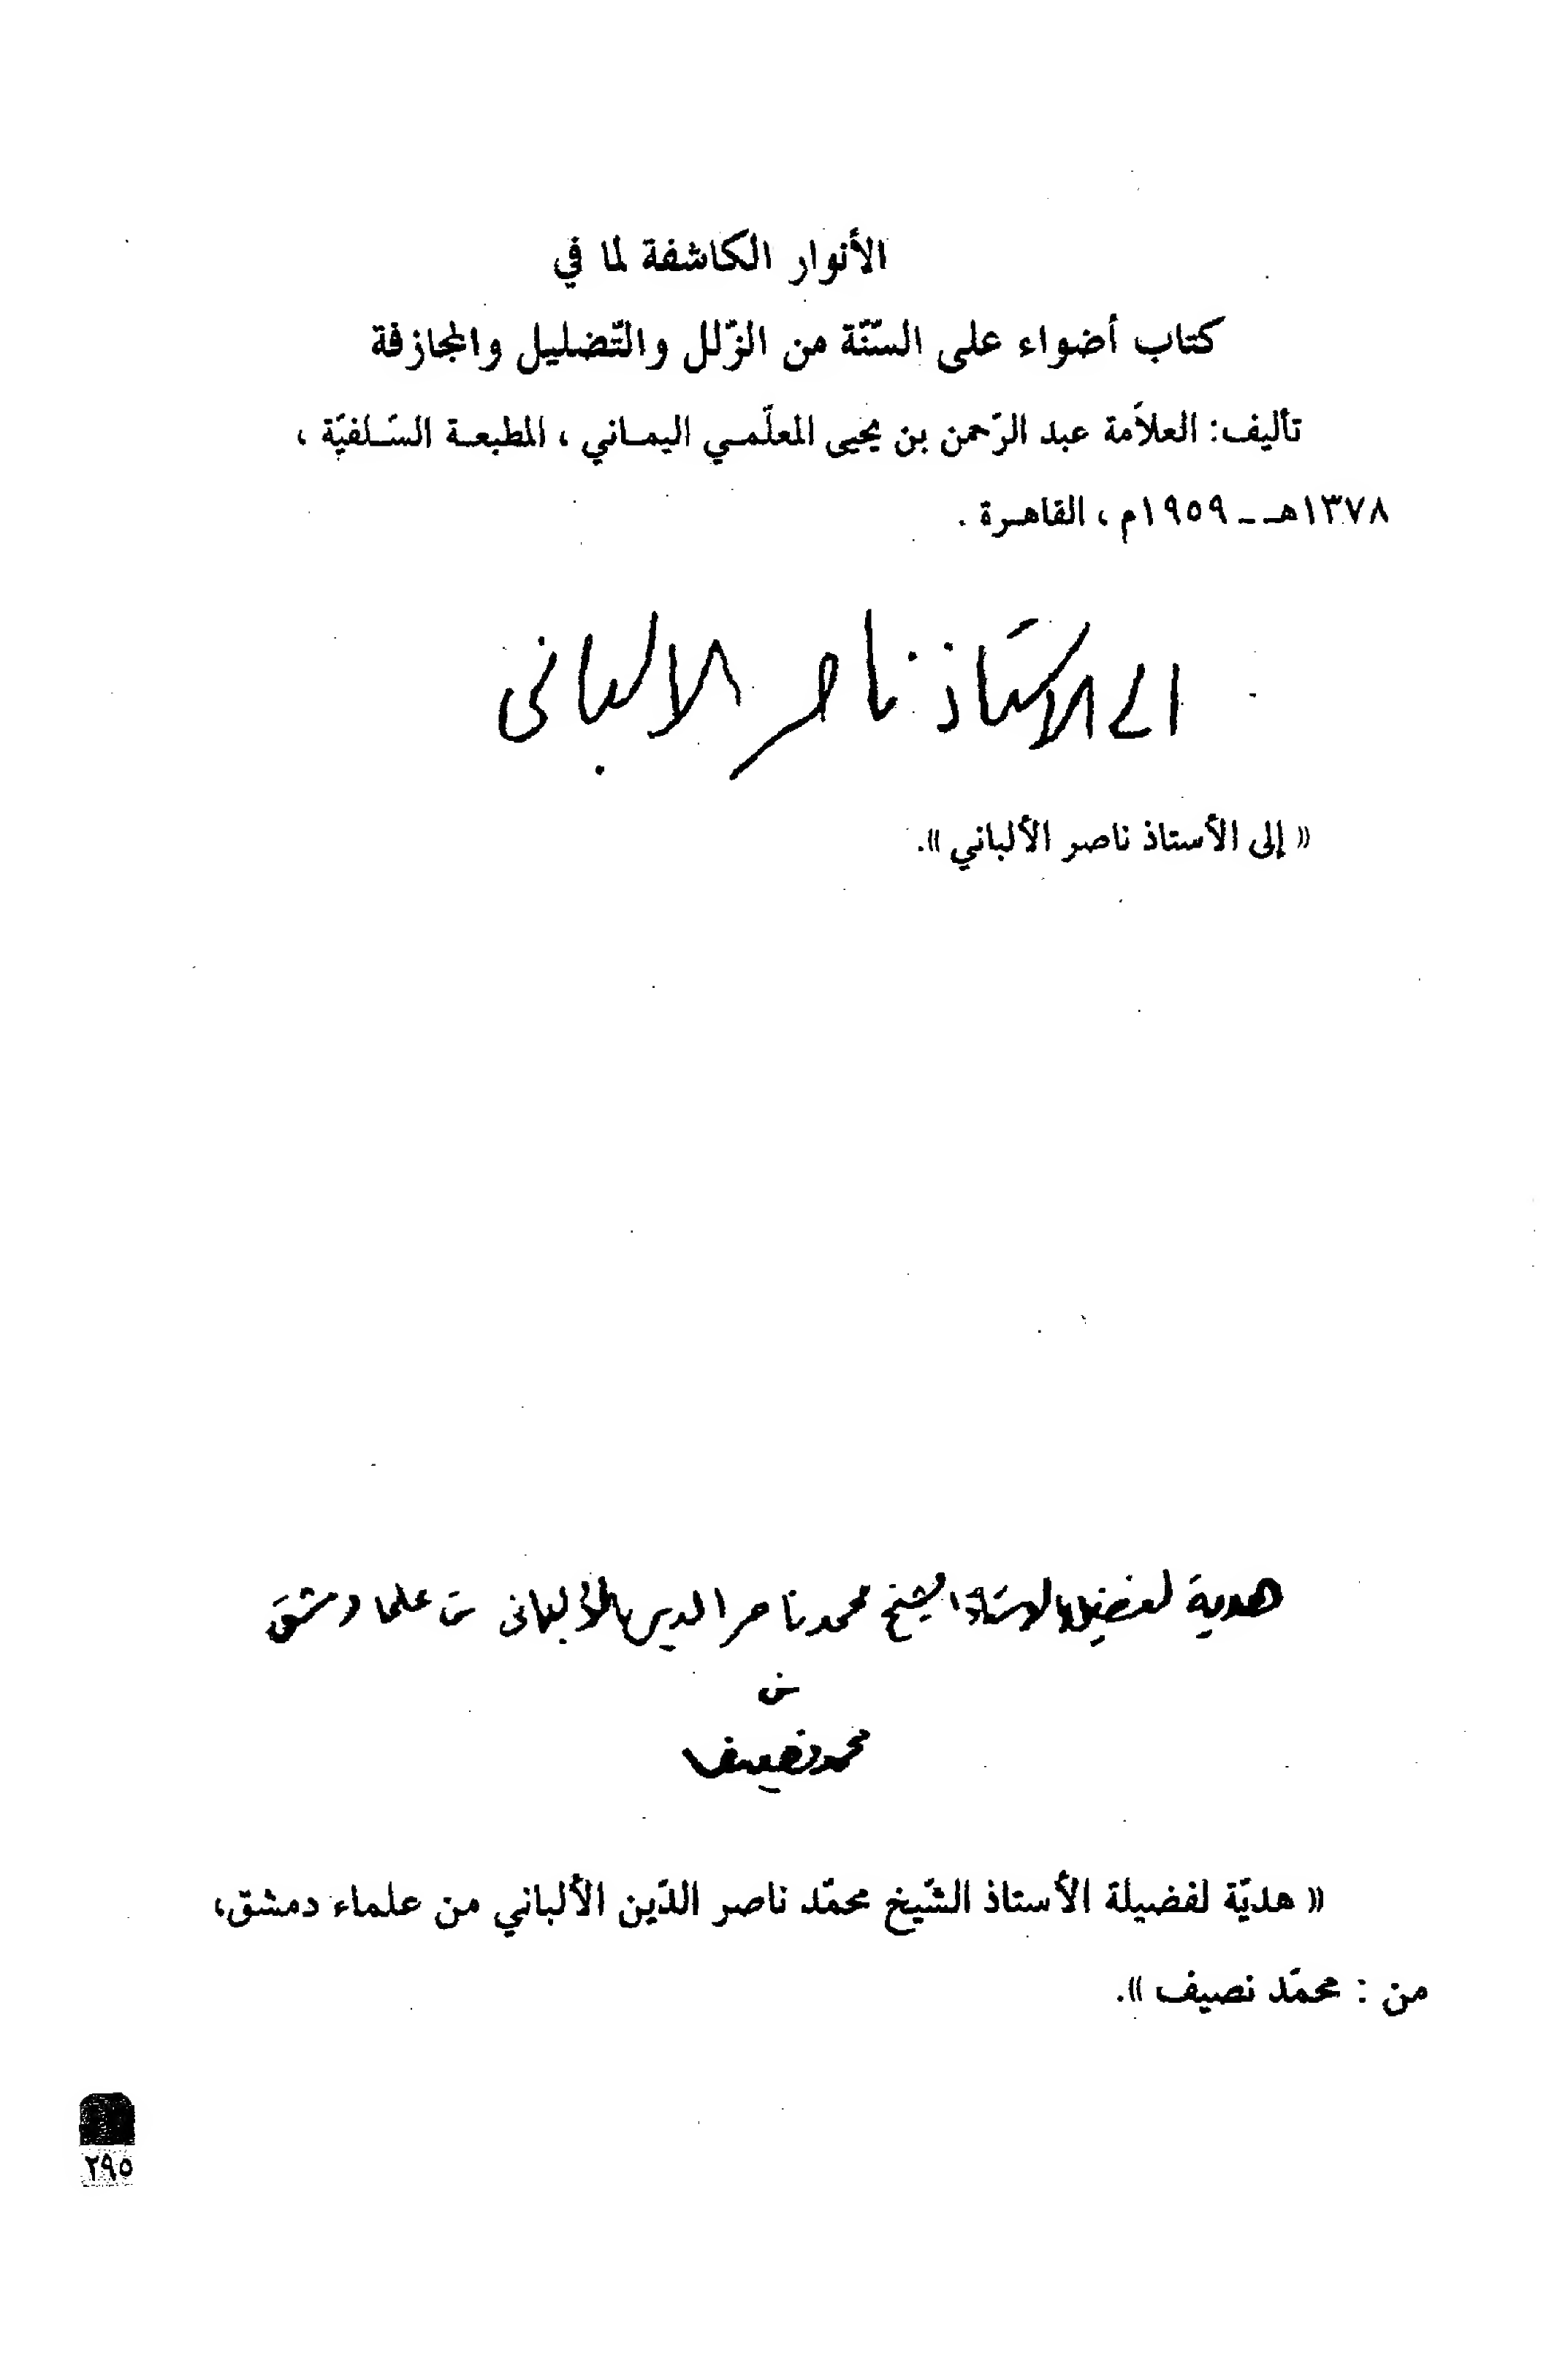 الأنوار الكاشفة لما في
كتاب أضواء على السّنّة من الزّلل والتّضليل والمجازفة
تأليف: العلاّمة عبد الرّحمن بن يحيى المعلّمي اليماني ، المطبعة السّلفيّة ،
١٣٧٨هـ ـ ١٩٥٩م ، القاهرة .
الى الاستاذ ناصر الالبانى
« إلى الأستاذ ناصر الألباني ».
هدية لفضيلة الاستاذ الشيخ محمد ناصر الدين الألبانى من علماء دمشق
من
محمد نصيف
« هديّة لفضيلة الأستاذ الشّيخ محمّد ناصر الدّين الألباني من علماء دمشق،
من : محمّد نصيف ».
٢٩٥